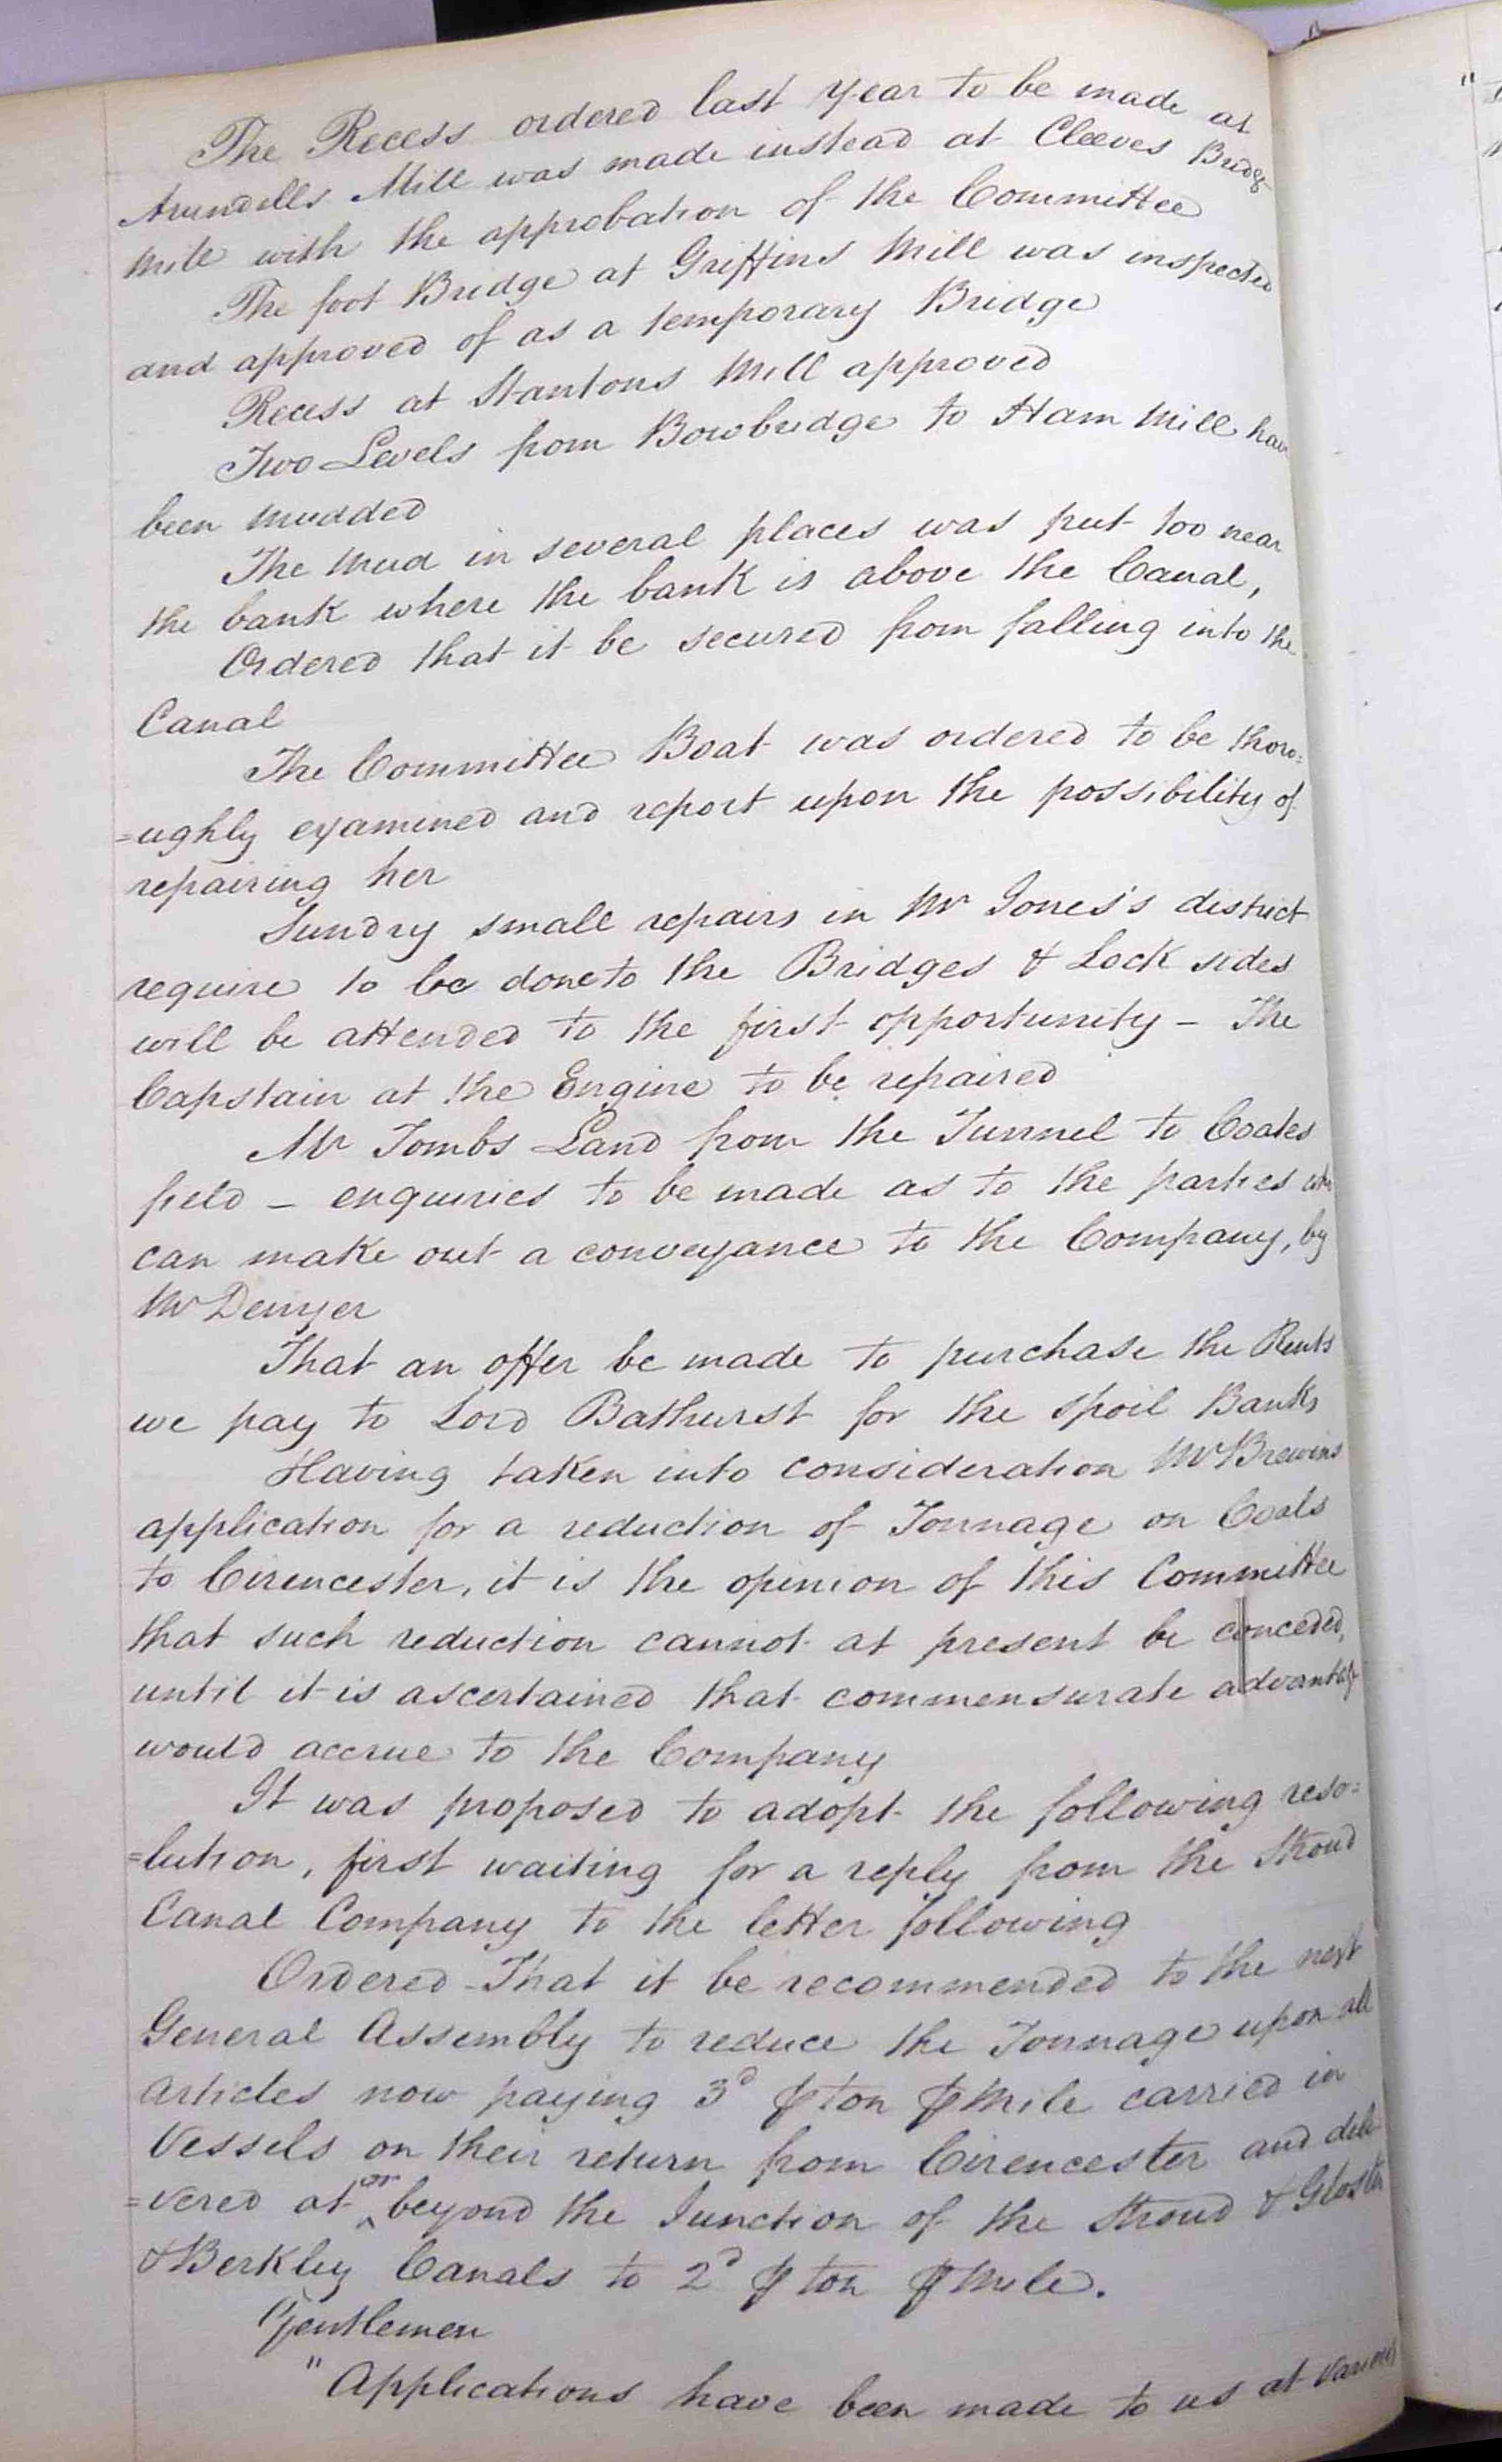 The Recess ordered last year to be made at
Arundells Mill was made instead at Cleeves Bridge
Mill with the approbation of the Committee
The foot Bridge at Griffins Mill was inspected
and approved of as a temporary Bridge
Recess at Stantons Mill approved
Two Levels from Bowbridge to Ham Mill have
been mudded
The Mud in several places was put too near
the bank where the bank is above the Canal,
Ordered that it be secured from falling into the
Canal
The Committee Boat was ordered to be thoro=
=ughly examined and report upon the possibility of
repairing her
Sundry small repairs in Mr Jones's district
require to be done to the Bridges & Lock sides
will be attended to the first opportunity - The
Capstain at the Engine to be repaired
Mr Tombs Land from the Tunnel to Coates
field - enquiries to be made as to the parties who
can make out a conveyance to the Company, by
Mr Denyer
That an offer be made to purchase the Rents
we pay to Lord Bathurst for the Spoil Banks
Having taken into consideration Mr Brewins
application for a reduction of Tonnage on Coals
to Cirencester, it is the opinion of this Committee
that such reduction cannot at present be conceded,
until it is ascertained that commensurate advantage
would accrue to the Company
It was proposed to adopt the following reso=
=lution, first waiting for a reply from the Stroud
Canal Company to the letter following
Ordered - That it be recommended to the next
General Assembly to reduce the Tonnage upon all
articles now paying 3d ⅌ ton ⅌ Mile carried in
Vessels on their return from Cirencester and deli
=vered at or beyond the Junction of the Stroud & Gloster
& Berkley Canals to 2d ⅌ ton ⅌ Mile.
Gentlemen
"Applications have been made to us at various